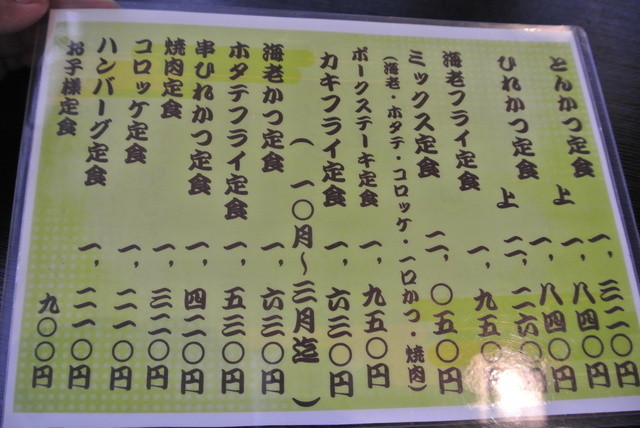 とんかつ定食 一、三二〇円
上 一、八四〇円
ひれかつ定食 一、八四〇円
上 二、二六〇円
海老フライ定食 一、九五〇円
ミックス定食 二、〇五〇円
(海老・ホタテ・コロッケ・一口かつ・焼肉)
ポークステーキ定食 一、九五〇円
カキフライ定食 一、六三〇円
(一〇月〜三月迄)
海老かつ定食 一、六三〇円
ホタテフライ定食 一、五三〇円
串ひれかつ定食 一、四二〇円
焼肉定食 一、三二〇円
コロッケ定食 一、二一〇円
ハンバーグ定食 一、二一〇円
お子様定食 九〇〇円